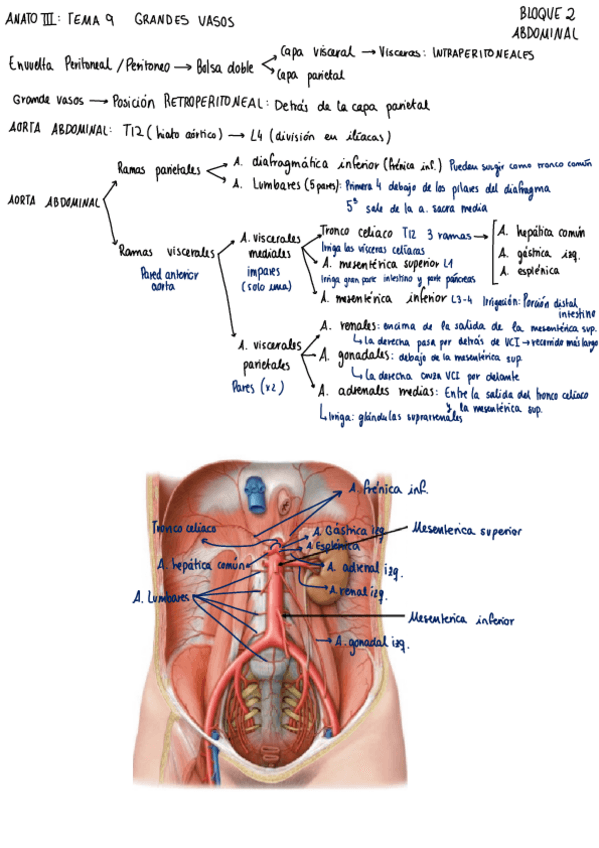 ANATO III: TEMA 9 GRANDES VASOS
BLOQUE 2
ABDOMINAL
Envuelta Peritoneal / Peritoneo → Bolsa doble
Capa visceral → Visceras: INTRAPERITONEALES
Capa parietal
Grande vasos → Posición RETROPERITONEAL: Detrás de la capa parietal
AORTA ABDOMINAL: T12 (hiato aórtico) → L4 (división en ilíacas)
AORTA ABDOMINAL
Ramas parietales
A. diafragmática inferior (frénica inf.) Pueden surgir como tronco común
A. Lumbares (5 pares): Primera 4 debajo de los pilares del diafragma
5ª sale de la a. sacra media
Ramas viscerales
Pared anterior
aorta
A. viscerales
mediales
impares
(solo una)
Tronco celiaco T12 3 ramas →
Irriga las vísceras celíacas
A. hepática común
A. gástrica izq.
A. esplénica
A. mesentérica superior L1
Irriga gran parte intestino y parte páncreas
A. mesentérica inferior L3-4 Irrigación: Porción distal
intestino
A. viscerales
parietales
Pares (x2)
A. renales: encima de la salida de la mesentérica sup.
↳ la derecha pasa por detrás de VCI → recorrido más largo
A. gonadales: debajo de la mesentérica sup.
↳ La derecha cruza VCI por delante
A. adrenales medias: Entre la salida del tronco celiaco
y la mesentérica sup.
↳ Irriga: glándulas suprarrenales
A. frénica inf.
Tronco celiaco
A. Gástrica izq
Mesenterica superior
A. Esplénica
A. hepática común
A. adrenal izq.
A. renal izq.
A. Lumbares
Mesenterica inferior
A. gonadal izq.